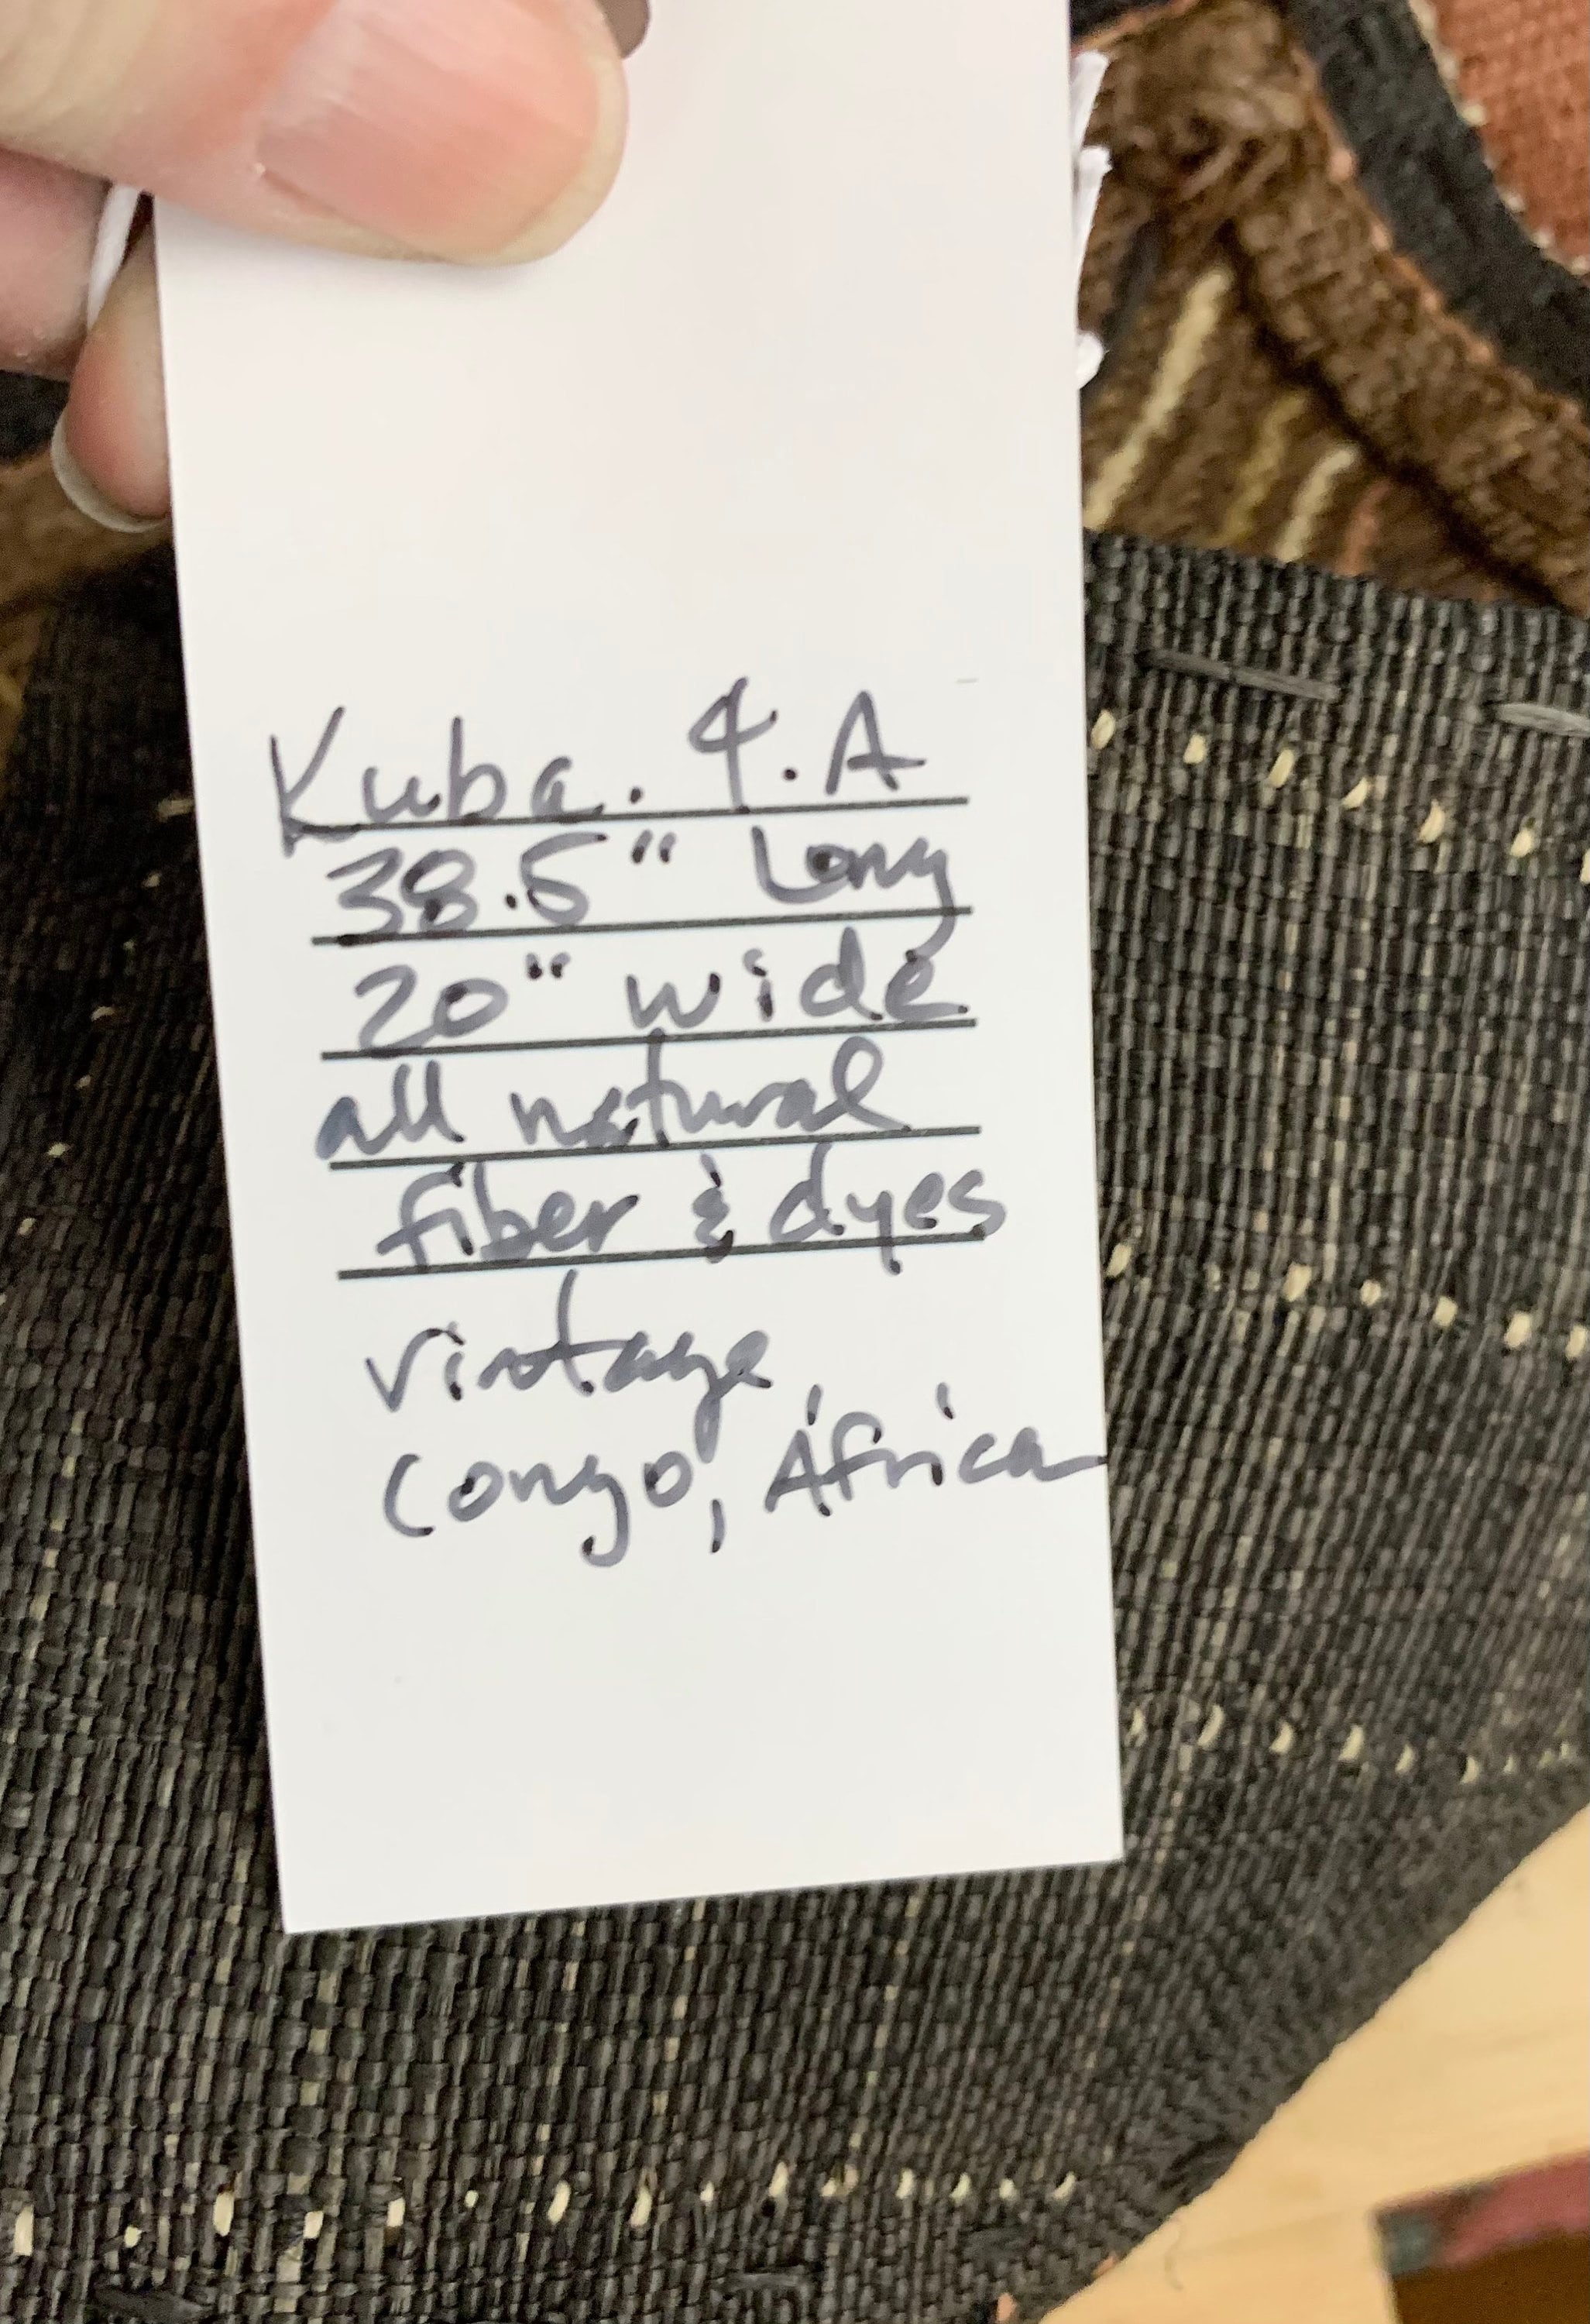 Kuba. 4.A
38.5" Long
20" wide
all natural
fiber & dyes
vintage
Congo, Africa